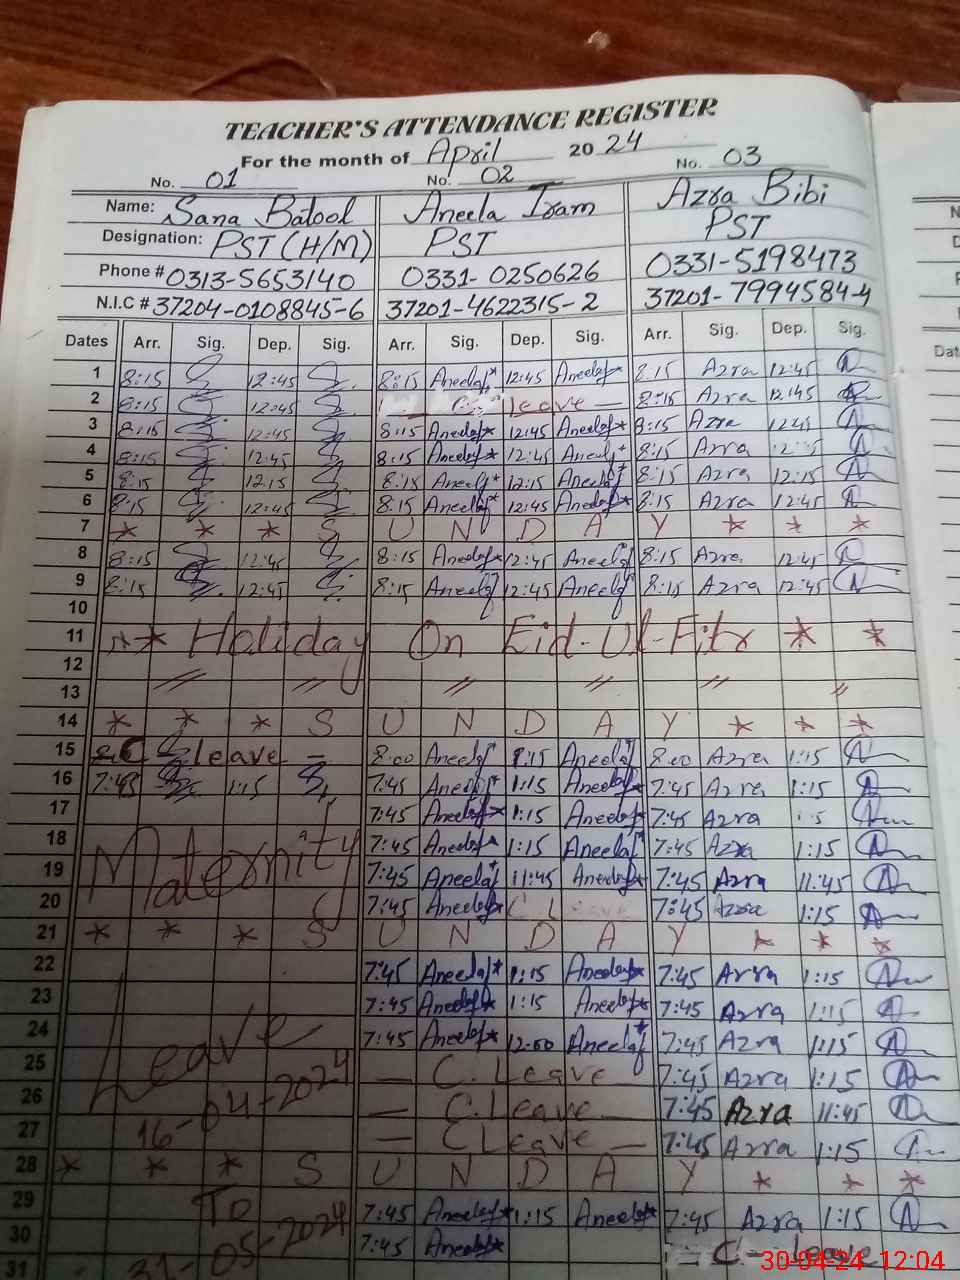 TEACHER'S ATTENDANCE REGISTER
For the month of April 2024
No. 01 No. 02 No. 03
Name: Sana Batool Aneela Iram Azra Bibi
Designation: PST (H/M) PST PST
Phone # 0313-5653140 0331-0250626 0331-5198473
N.I.C # 37204-0108845-6 37201-4622315-2 37201-7994584-4
Dates Arr. Sig. Dep. Sig. Arr. Sig. Dep. Sig. Arr. Sig. Dep. Sig.
1 8:15 12:45 8:15 Aneela 12:45 Aneela 8:15 Azra 12:45
2 8:15 12:45 C. leave 8:15 Azra 12:45
3 8:15 12:45 8:15 Aneela 12:45 Aneela 8:15 Azra 12:45
4 8:15 12:45 8:15 Aneela 12:45 Aneela 8:15 Azra
5 8:15 12:15 8:15 Aneela 12:15 Aneela 8:15 Azra 12:15
6 8:15 12:45 8:15 Aneela 12:45 Aneela 8:15 Azra 12:45
7 * * * S U N D A Y * * *
8 8:15 12:45 8:15 Aneela 12:45 Aneela 8:15 Azra 12:45
9 8:15 12:45 8:15 Aneela 12:45 Aneela 8:15 Azra 12:45
10
11 ** Holiday On Eid-Ul-Fitr * *
12
13 〃 〃 〃 〃 〃 〃
14 * * * S U N D A Y * * *
15 C leave - 8:00 Aneela 1:15 Aneela 8:00 Azra 1:15
16 7:45 1:15 7:45 Aneela 1:15 Aneela 7:45 Azra 1:15
17 7:45 Aneela 1:15 Aneela 7:45 Azra
18 Maternity 7:45 Aneela 1:15 Aneela 7:45 Azra 1:15
19 7:45 Aneela 11:45 Aneela 7:45 Azra 11:45
20 7:45 Aneela C Leave 7:45 Azra 1:15
21 * * * S U N D A Y * * *
22 7:45 Aneela 1:15 Aneela 7:45 Azra 1:15
23 7:45 Aneela 1:15 Aneela 7:45 Azra 1:15
24 Leave 7:45 Aneela 12:00 Aneela 7:45 Azra 1:15
25 - C. Leave 7:45 Azra 1:15
26 16-04-2024 - C. Leave - 7:45 Azra 11:45
27 - C Leave - 7:45 Azra 1:15
28 * * * S U N D A Y * * *
29 To 7:45 Aneela 1:15 Aneela 7:45 Azra 1:15
30 7:45 Aneela C - leave
31 31-05-2024
30-04-24 12:04